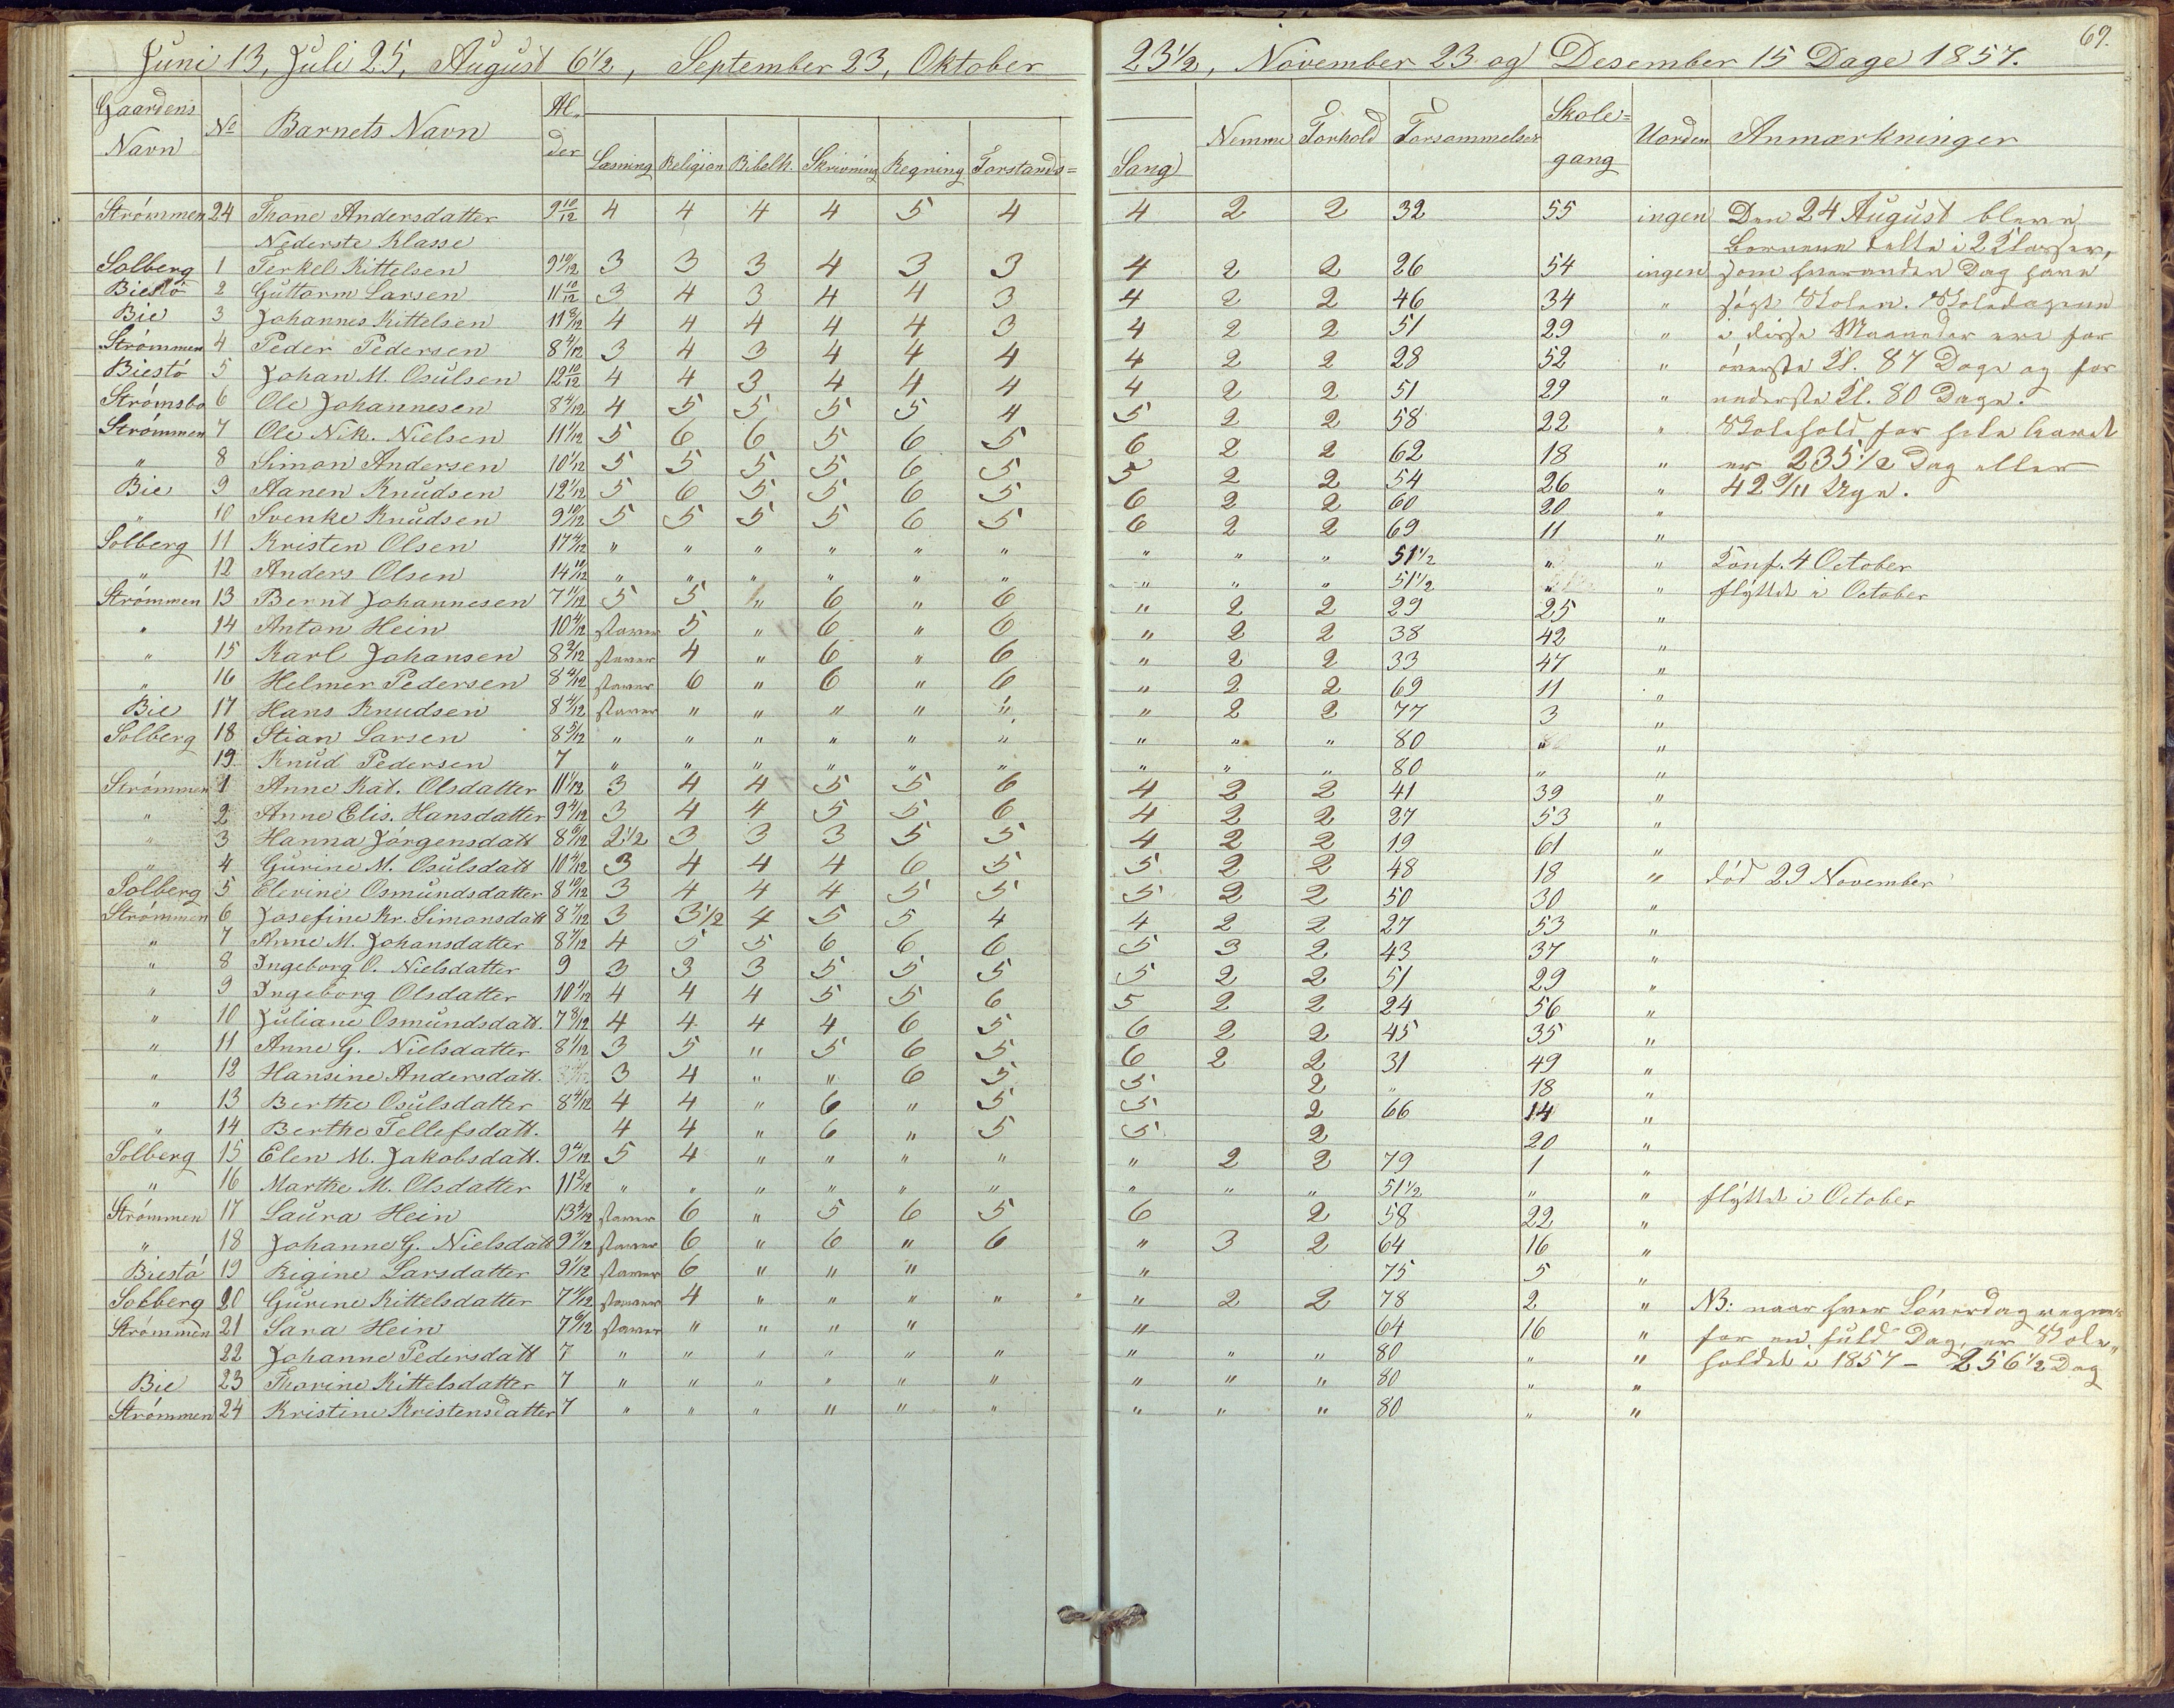 69.
Juni 13, Juli 25, August 6 1/2, September 23, Oktober 23 1/2, November 23 og Desember 15 Dage 1857.
Gaardens Navn No Barnets Navn Alder Læsning Religion Bibelh. Skrivning Regning Forstands= Sang Nemme Forhold Forsømmelser Skole=gang Uorden Anmærkninger
Strømmen 24 Thone Andersdatter 9 10/12 4 4 4 4 5 4 4 2 2 32 55 ingen Den 24 August bleve
Nederste Klasse Børnene delte i 2 Klasser,
Solberg 1 Terkel Kittelsen 9 10/12 3 3 3 4 3 3 4 2 2 26 54 ingen som hveranden Dag have
Biestø 2 Guttorm Larsen 11 10/12 3 4 3 4 4 3 4 2 2 46 34 " søgt Skolen. Skoledagene
Bie 3 Johannes Kittelsen 11 8/12 4 4 4 4 4 3 4 2 2 51 29 " i disse Maaneder ere for
Strømmen 4 Peder Pedersen 8 4/12 3 4 3 4 4 4 4 2 2 28 52 " øverste Kl. 87 Dage og for
Biestø 5 Johan M. Osulsen 12 10/12 4 4 3 4 4 4 4 2 2 51 29 " nederste Kl. 80 Dage.
Strømsbo 6 Ole Johannesen 8 4/12 4 5 5 5 5 4 5 2 2 58 22 " Skolehold for hele Aaret
Strømmen 7 Ole Nik. Nielsen 11 1/12 5 6 6 5 6 5 6 2 2 62 18 " er 235 1/2 Dag eller
" 8 Simon Andersen 10 1/12 5 5 5 5 6 5 5 2 2 54 26 " 42 9/11 Uge.
Bie 9 Aanen Knudsen 12 1/12 5 6 5 5 6 5 6 2 2 60 20 "
" 10 Svenke Knudsen 9 10/12 5 5 5 5 6 5 6 2 2 69 11 "
Solberg 11 Kristen Olsen 17 4/12 " " " " " " " " " 51 1/2 " " Konf. 4 October
" 12 Anders Olsen 14 10/12 " " " " " " " " " 51 1/2 " " flyttet i October
Strømmen 13 Bernt Johannesen 7 11/12 5 5 " 6 " 6 " 2 2 29 25 "
" 14 Anton Hein 10 4/12 staver 5 " 6 " 6 " 2 2 38 42 "
" 15 Karl Johansen 8 2/12 staver 4 " 6 " 6 " 2 2 33 47 "
" 16 Helmer Pedersen 8 4/12 staver 6 " 6 " 6 " 2 2 69 11 "
Bie 17 Hans Knudsen 8 4/12 staver " " " " " " 2 2 77 3 "
Solberg 18 Stian Larsen 8 5/12 " " " " " " " " " 80 " "
19 Knud Pedersen 7 " " " " " " " " " 80 " "
Strømmen 1 Anne Kat. Olsdatter 11 1/12 3 4 4 5 5 6 4 2 2 41 39 "
" 2 Anne Elis. Hansdatter 9 4/12 3 4 4 5 5 6 4 2 2 27 53 "
" 3 Hanna Jørgensdatt 8 6/12 2 1/2 3 3 3 5 5 4 2 2 19 61 "
" 4 Gurine M. Osulsdatt 10 4/12 3 4 4 4 6 5 5 2 2 48 18 " død 29 November
Solberg 5 Elevine Osmundsdatter 8 10/12 3 4 4 4 5 5 5 2 2 50 30 "
Strømmen 6 Josefine Kr. Simonsdatt 8 7/12 3 3 1/2 4 5 5 4 4 2 2 27 53 "
" 7 Anne M. Johansdatter 8 7/12 4 5 5 6 6 6 5 3 2 43 37 "
" 8 Ingeborg O. Nielsdatter 9 3 3 3 5 5 5 5 2 2 51 29 "
" 9 Ingeborg Olsdatter 10 1/12 4 4 4 5 5 6 5 2 2 24 56 "
" 10 Juliane Osmundsdatt. 7 8/12 4 4 4 4 6 5 6 2 2 45 35 "
" 11 Anne G. Nielsdatter 8 1/12 3 5 " 5 6 5 6 2 2 31 49 "
" 12 Hansine Andersdatt. 3 4 " " 6 5 5 2 " 18 "
" 13 Berthe Osulsdatter 8 4/12 4 4 " 6 " 5 5 2 66 14 "
" 14 Berthe Tellefsdatt. 4 4 " 6 " 5 5 2 20 "
Solberg 15 Elen M. Jakobsdatt. 9 4/12 5 4 " " " " " 2 2 79 1 "
" 16 Marthe M. Olsdatter 11 2/12 " " " " " " " " " 51 1/2 " " flyttet i October
Strømmen 17 Laura Hein 13 4/12 staver 6 " 5 6 5 6 2 58 22 "
" 18 Johanne G. Nielsdatt 9 9/12 staver 6 " 6 " 6 " 3 2 64 16 "
Biestø 19 Regine Larsdatter 9 1/12 staver 6 " " " " 75 5 "
Solberg 20 Gurine Kittelsdatter 7 11/12 staver 4 " " " " " 2 2 78 2 " NB: naar hver Løverdag regnes
Strømmen 21 Sara Hein 7 6/12 staver " " " " " 64 16 " for en fuld Dag, er Skole,,
22 Johanne Pedersdatt 7 " " " " " " " " " 80 " " holdet i 1857 - 256 1/2 Dag
Bie 23 Thorine Kittelsdatter 7 " " " " " " " " " 80 " "
Strømmen 24 Kristine Kristensdatter 7 " " " " " " " " " 80 " "